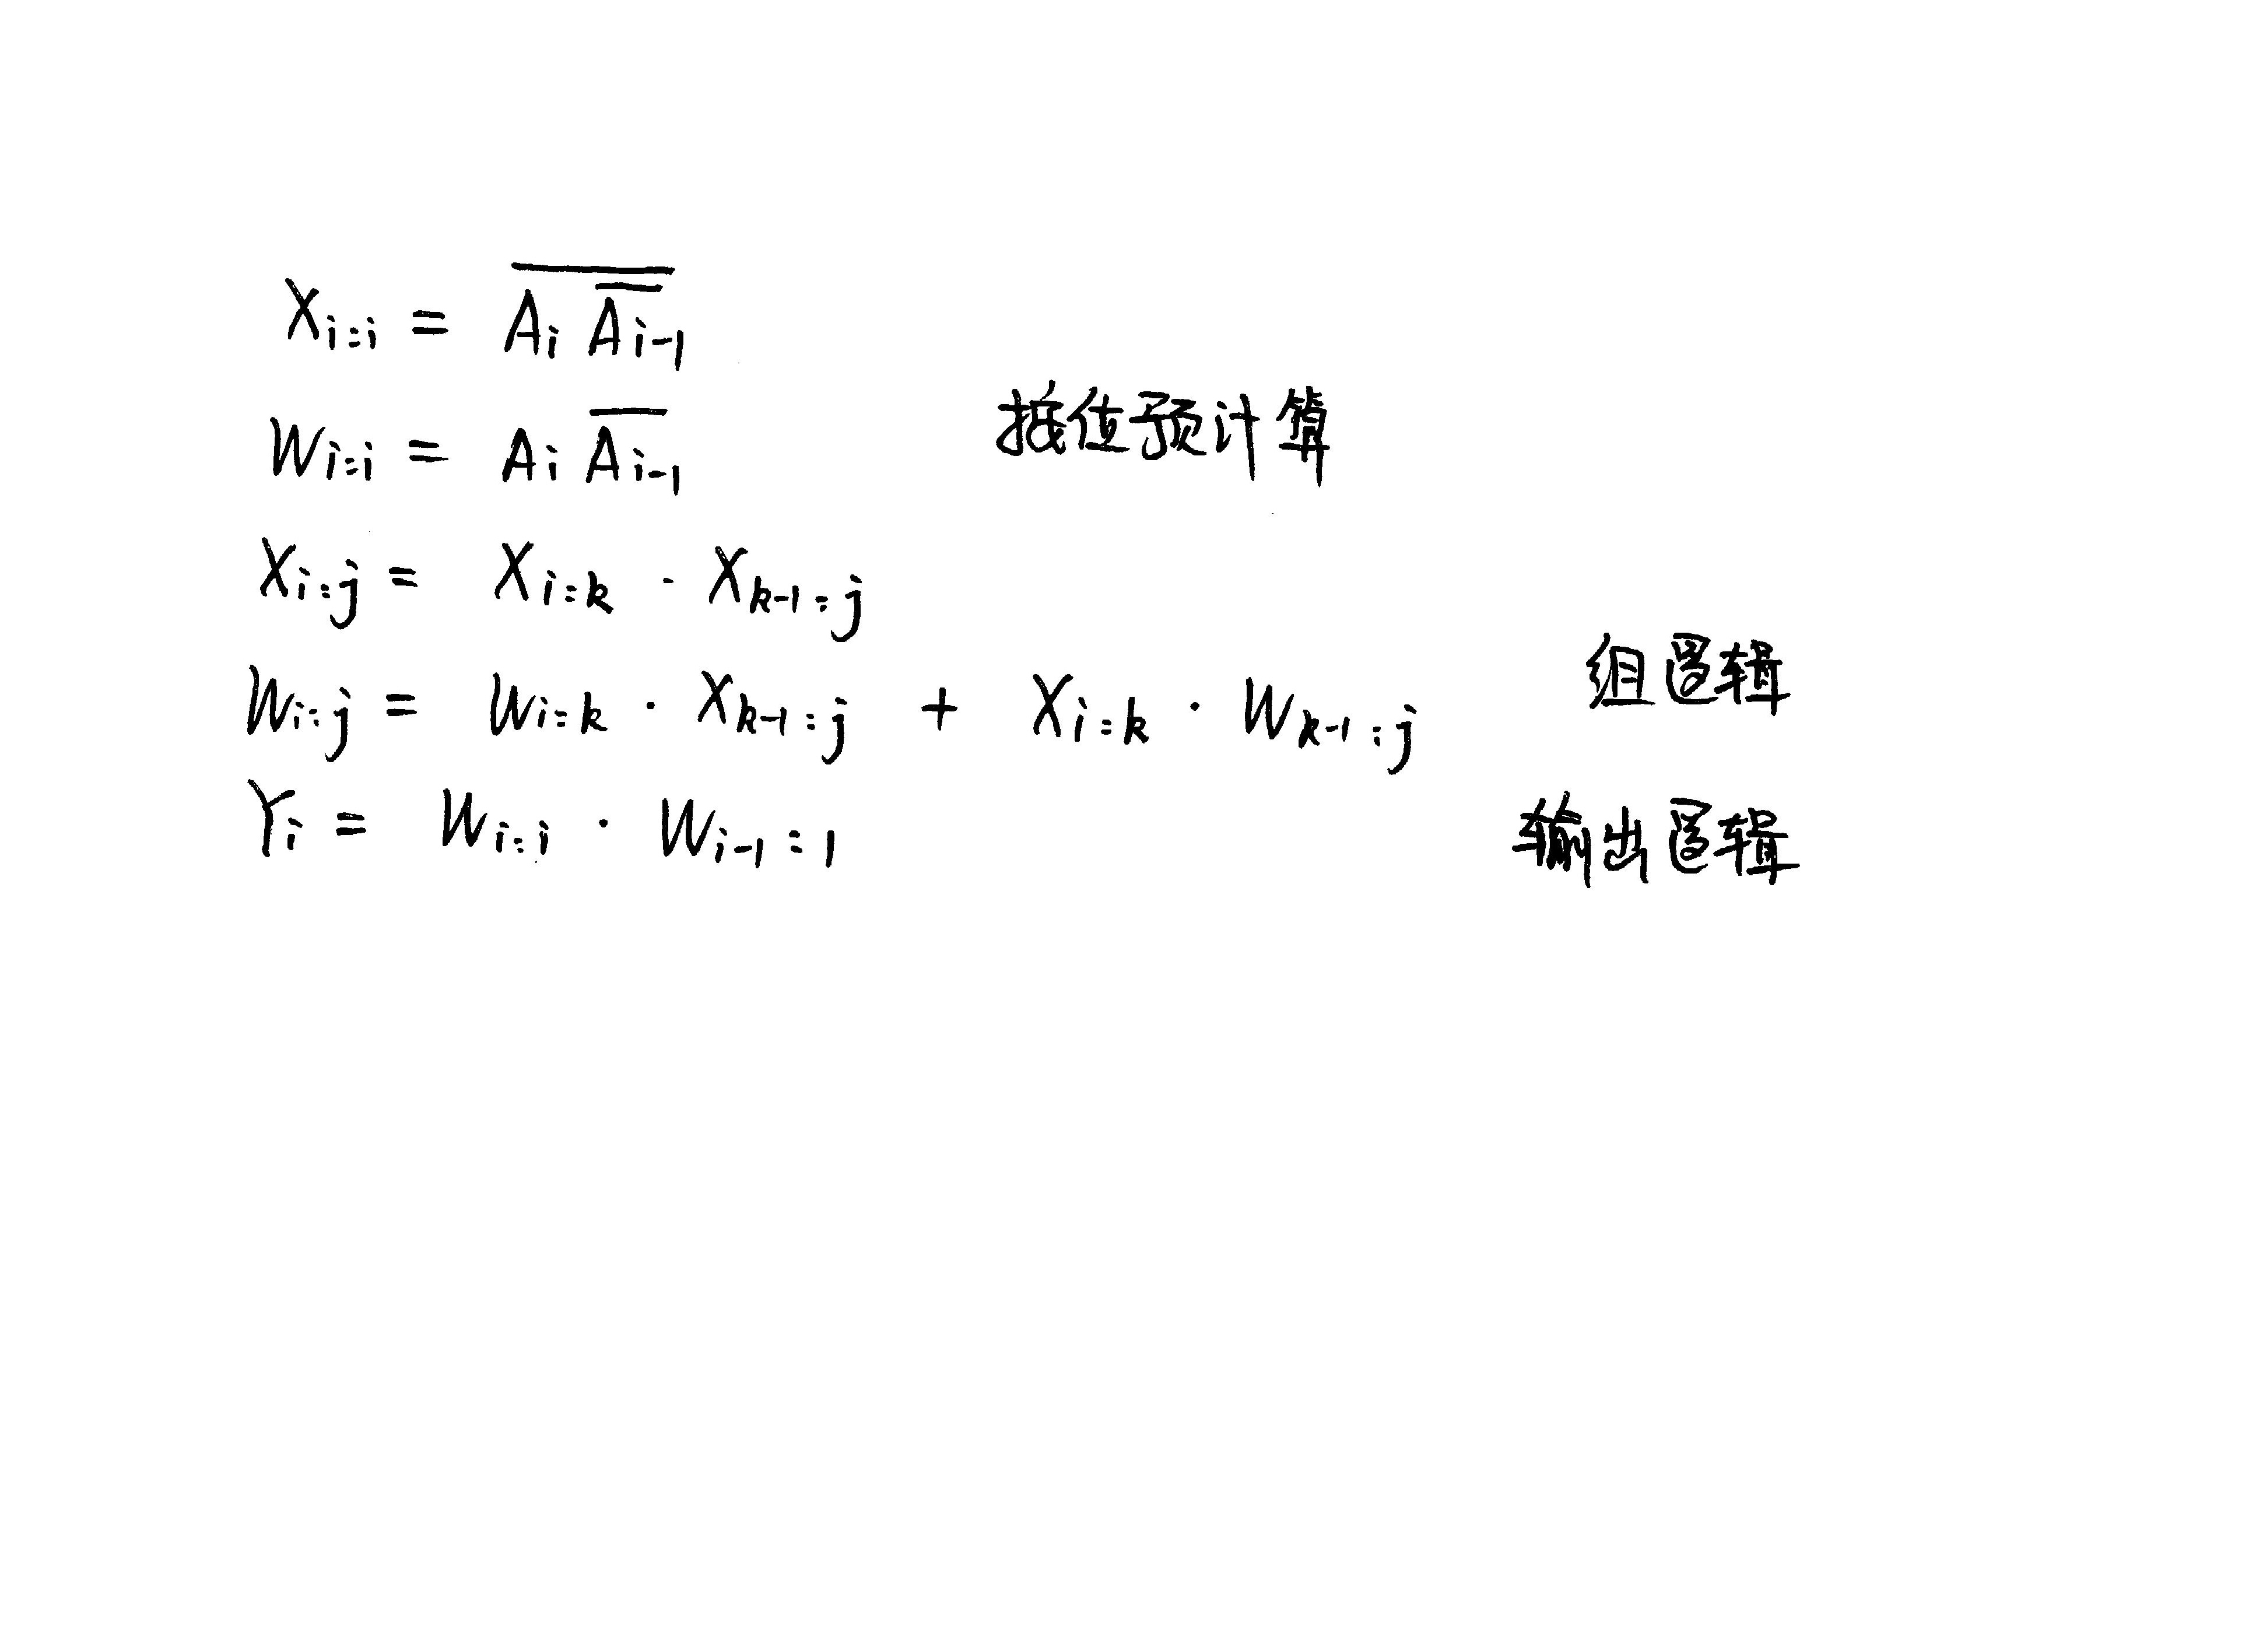 X_{i:i} = \overline{A_i \overline{A_{i-1}}}
W_{i:i} = A_i \overline{A_{i-1}}
按位预计算
X_{i:j} = X_{i:k} · X_{k-1:j}
W_{i:j} = W_{i:k} · X_{k-1:j} + X_{i:k} · W_{k-1:j} 组逻辑
Y_i = W_{i:i} · W_{i-1:1} 输出逻辑